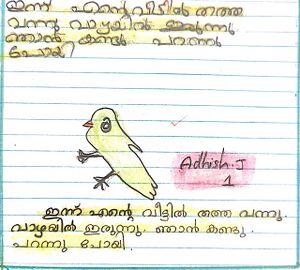 ഇന്ന് എന്റെ വീട്ടിൽ തത്ത
വന്നു വാഴയിൽ ഇരുന്നു
ഞാൻ കണ്ടു പറന്നു
പോയി
Adhish.J
1
ഇന്ന് എന്റെ വീട്ടിൽ തത്ത വന്നു.
വാഴയിൽ ഇരുന്നു. ഞാൻ കണ്ടു.
പറന്നു പോയി.